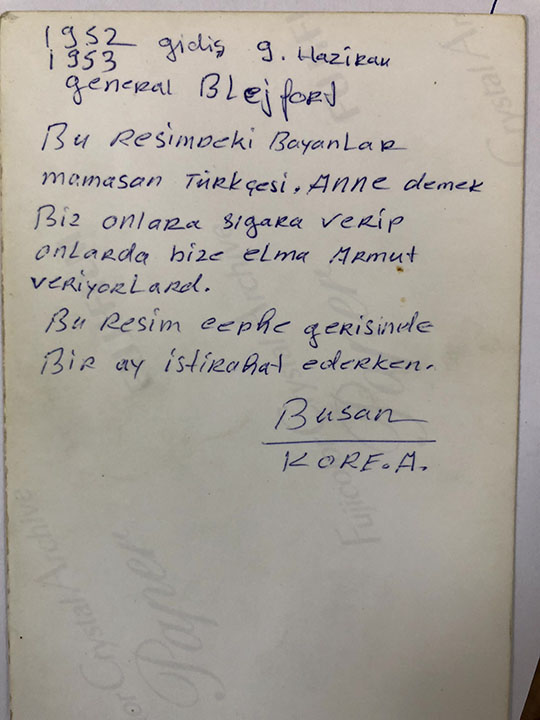 1952 gidiş 9. Haziran
1953
general Blejford
Bu Resimdeki Bayanlar
mamasan Türkçesi. Anne demek
Biz onlara sigara verip
onlarda bize elma Armut
veriyorlard.
Bu Resim cephe gerisinde
Bir ay istirahat ederken.
Busan
KORE.A.
Crystal Ar
Fujico
or Crystal Archive
Paper